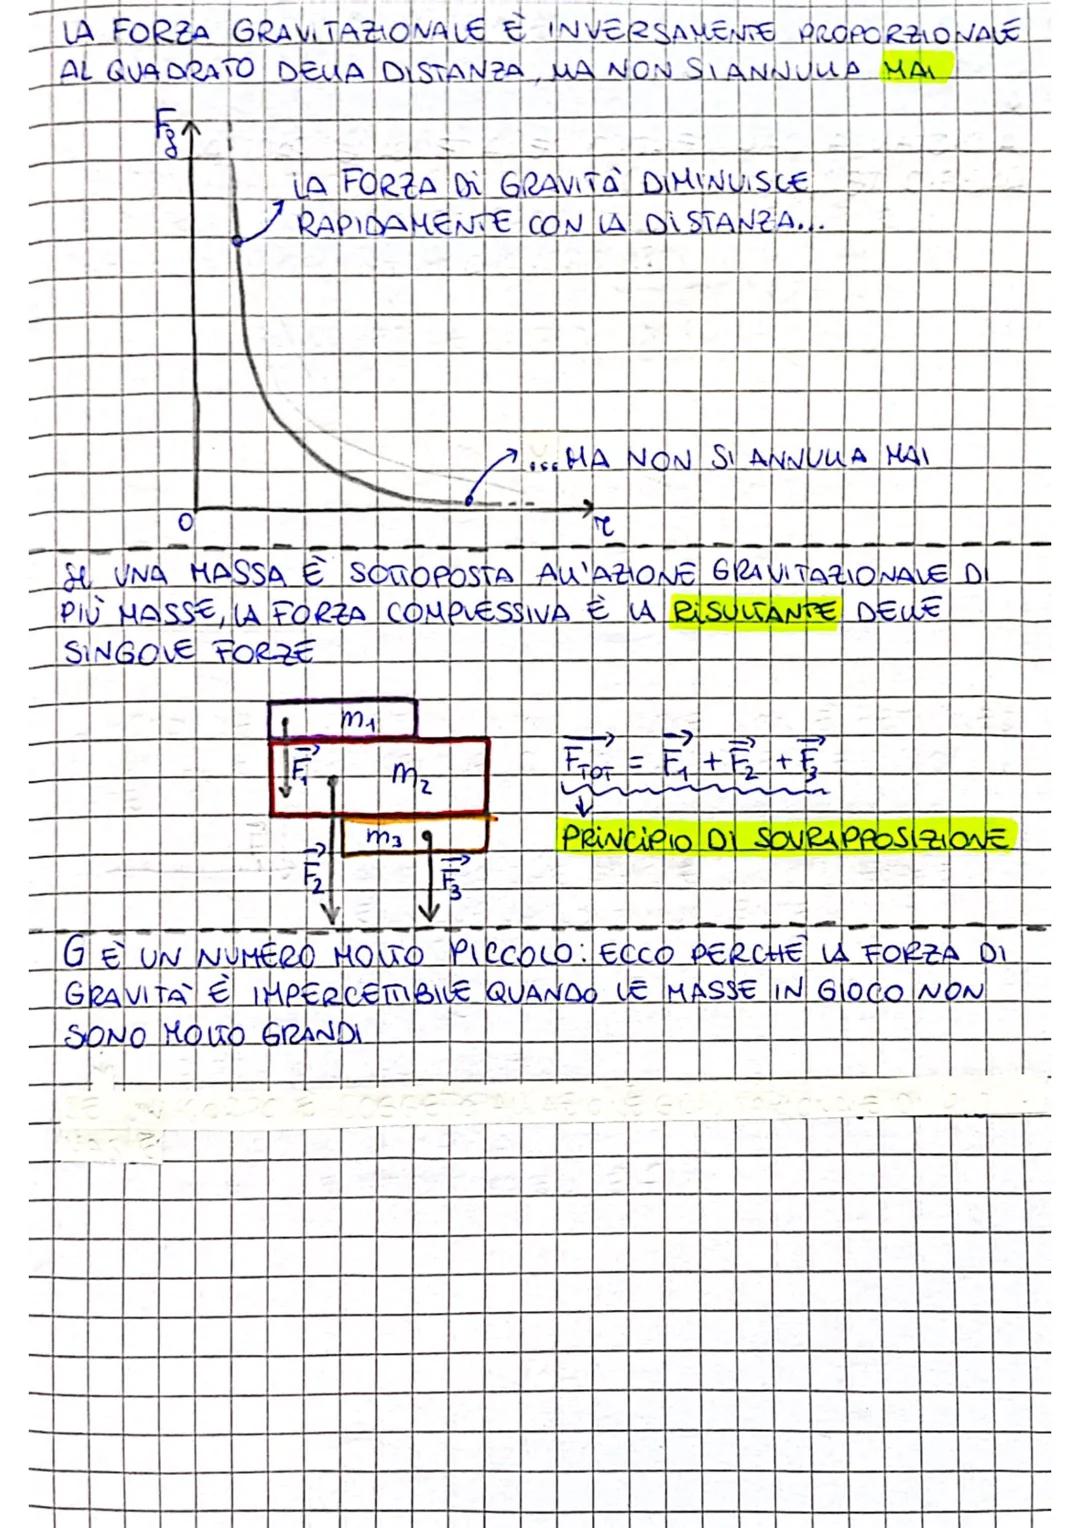 LA FORZA GRAVITAZIONALE È INVERSAMENTE PROPORZIONALE
AL QUADRATO DELLA DISTANZA, MA NON SI ANNULLA MAI
Fg
LA FORZA DI GRAVITÀ DIMINUISCE
RAPIDAMENTE CON LA DISTANZA...
...MA NON SI ANNULLA MAI
0
r
SE UNA MASSA È SOTTOPOSTA ALL'AZIONE GRAVITAZIONALE DI
PIÙ MASSE, LA FORZA COMPLESSIVA È LA RISULTANTE DELLE
SINGOLE FORZE
m1
F1 m2
FTOT = F1 + F2 + F3
m3
PRINCIPIO DI SOVRAPPOSIZIONE
F2 F3
G È UN NUMERO MOLTO PICCOLO: ECCO PERCHÉ LA FORZA DI
GRAVITÀ È IMPERCETTIBILE QUANDO LE MASSE IN GIOCO NON
SONO MOLTO GRANDI